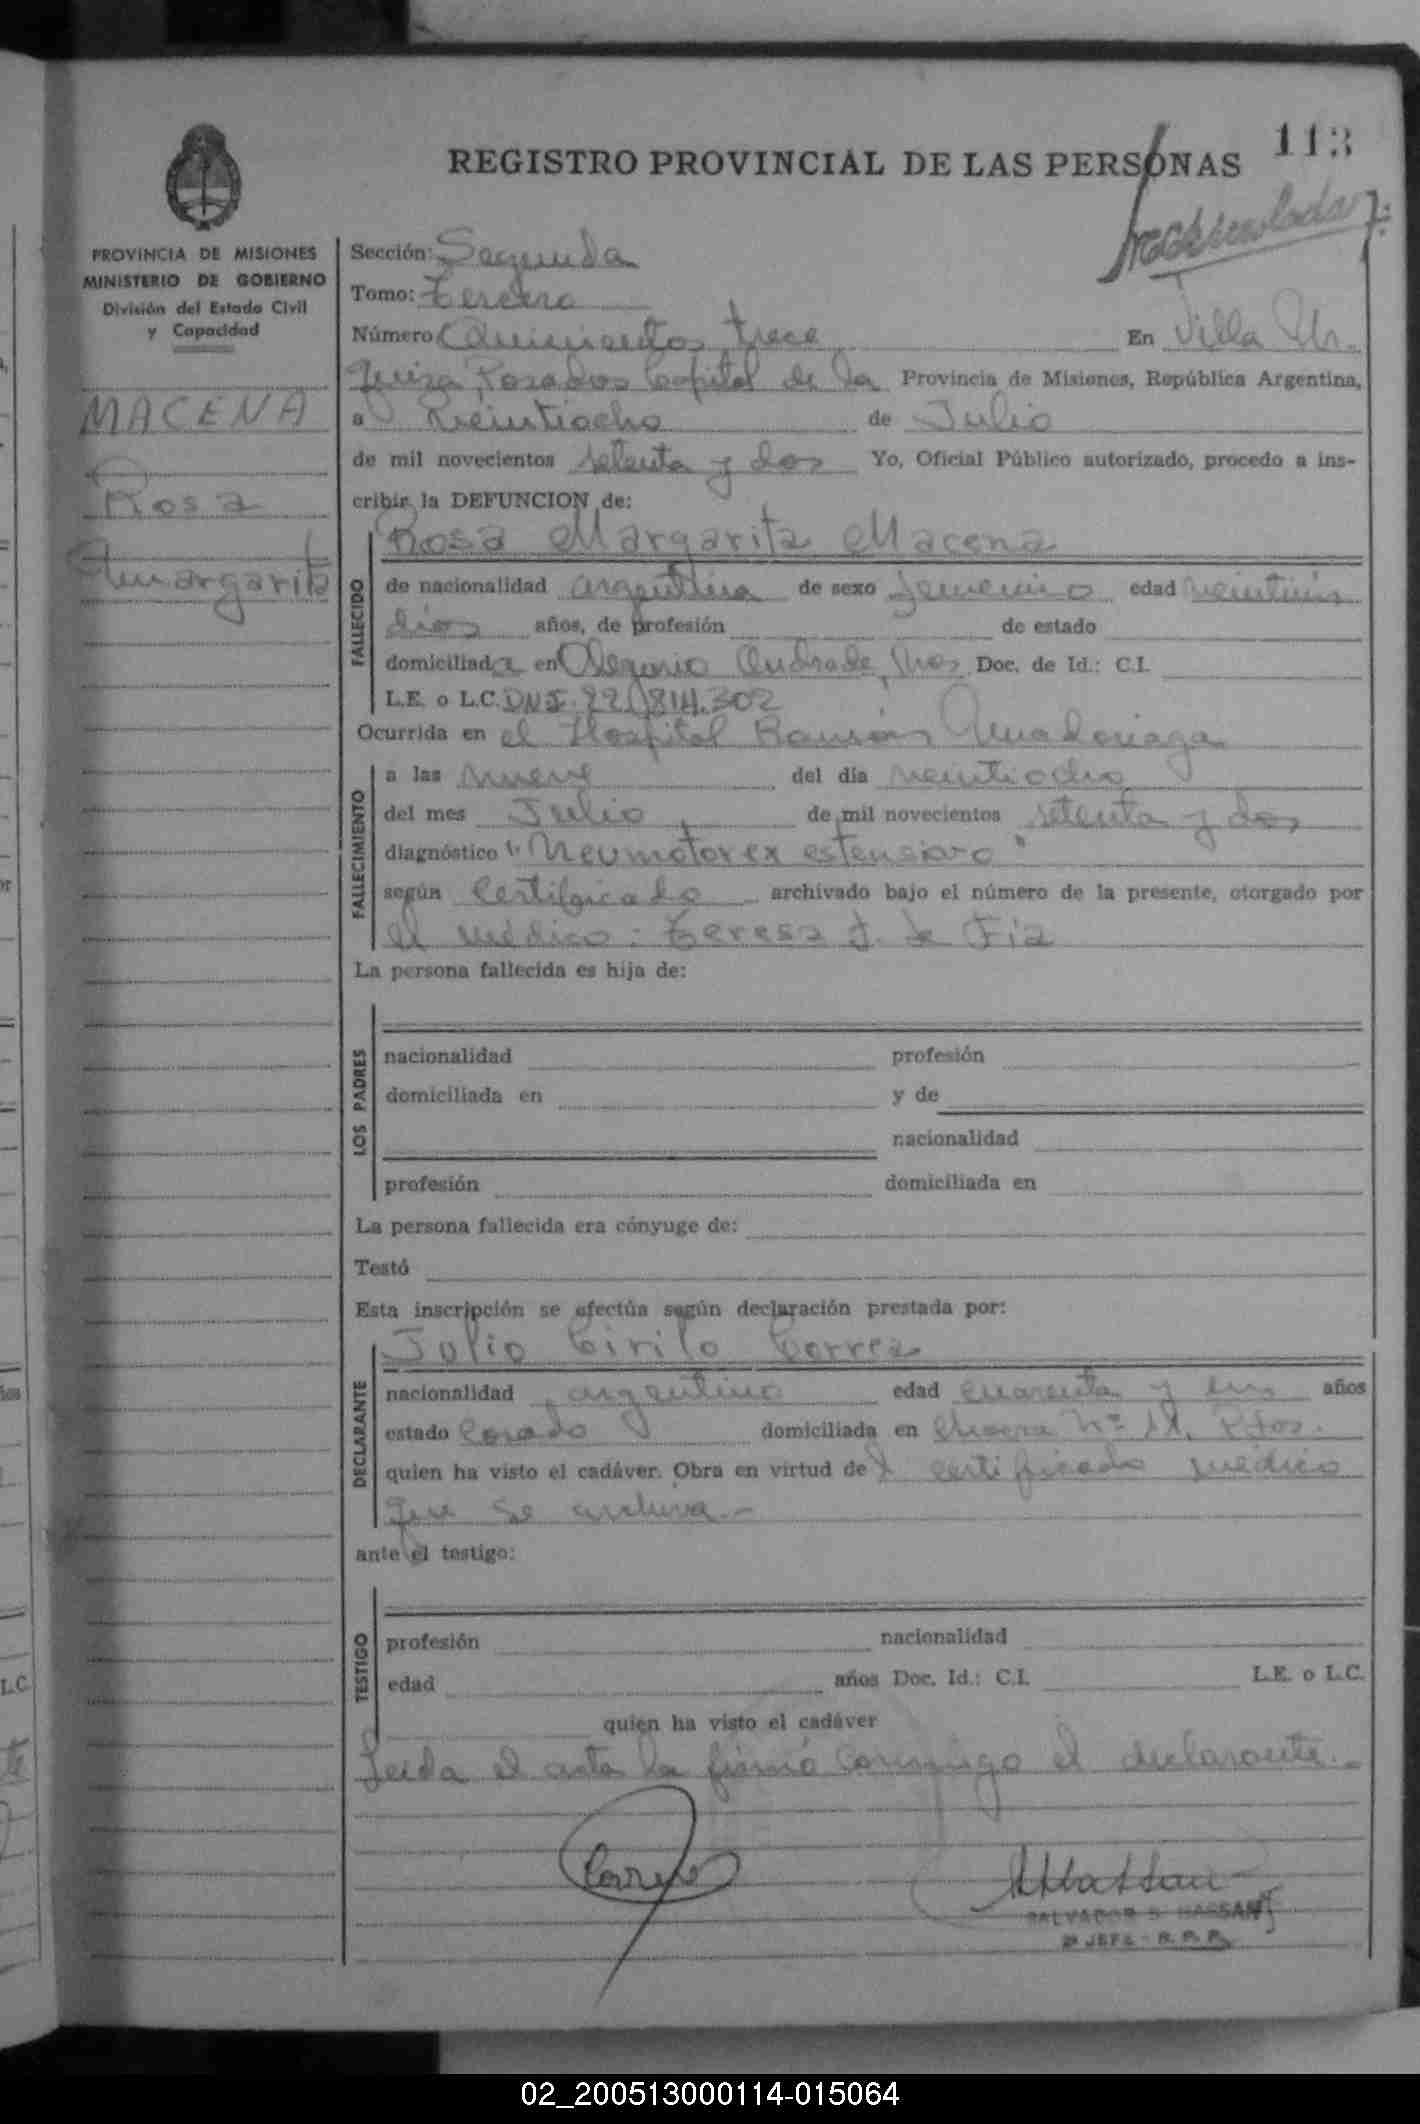 113
REGISTRO PROVINCIAL DE LAS PERSONAS
PROVINCIA DE MISIONES
MINISTERIO DE GOBIERNO
División del Estado Civil
y Capacidad
MACENA
Rosa
Margarita
Sección: Segunda
Tomo: Tercero
Número Quinientos trece En Villa Ur.
quiza Posadas Capital de la Provincia de Misiones, República Argentina,
a Veintiocho de Julio
de mil novecientos setenta y dos Yo, Oficial Público autorizado, procedo a ins-
cribir la DEFUNCION de:
Rosa Margarita Macena
FALLECIDO
de nacionalidad argentina de sexo femenino edad veintiún
días años, de profesión de estado
domiciliada en Olegario Andrade, Mnes Doc. de Id.: C.I.
L.E. o L.C. DNI. 22.814.302
Ocurrida en el Hospital Ramón Madariaga
FALLECIMIENTO
a las nueve del día veintiocho
del mes Julio de mil novecientos setenta y dos
diagnóstico "Neumotorex estensivo"
según Certificado archivado bajo el número de la presente, otorgado por
el médico: Teresa J. de Fia
La persona fallecida es hija de:
LOS PADRES
nacionalidad profesión
domiciliada en y de
nacionalidad
profesión domiciliada en
La persona fallecida era cónyuge de:
Testó
Esta inscripción se efectúa según declaración prestada por:
Julio Cirilo Correa
DECLARANTE
nacionalidad argentino edad cuarenta y un años
estado Casado domiciliada en Chacra Nº 11, Pdas.
quien ha visto el cadáver. Obra en virtud del certificado médico
que se archiva.-
ante el testigo:
TESTIGO
profesión nacionalidad
edad años Doc. Id.: C.I. L.E. o L.C.
quien ha visto el cadáver
Leída el acta la firmó conmigo el declarante.-
SALVADOR S. HASSAN
2º JEFE - R. P. P.
02_200513000114-015064